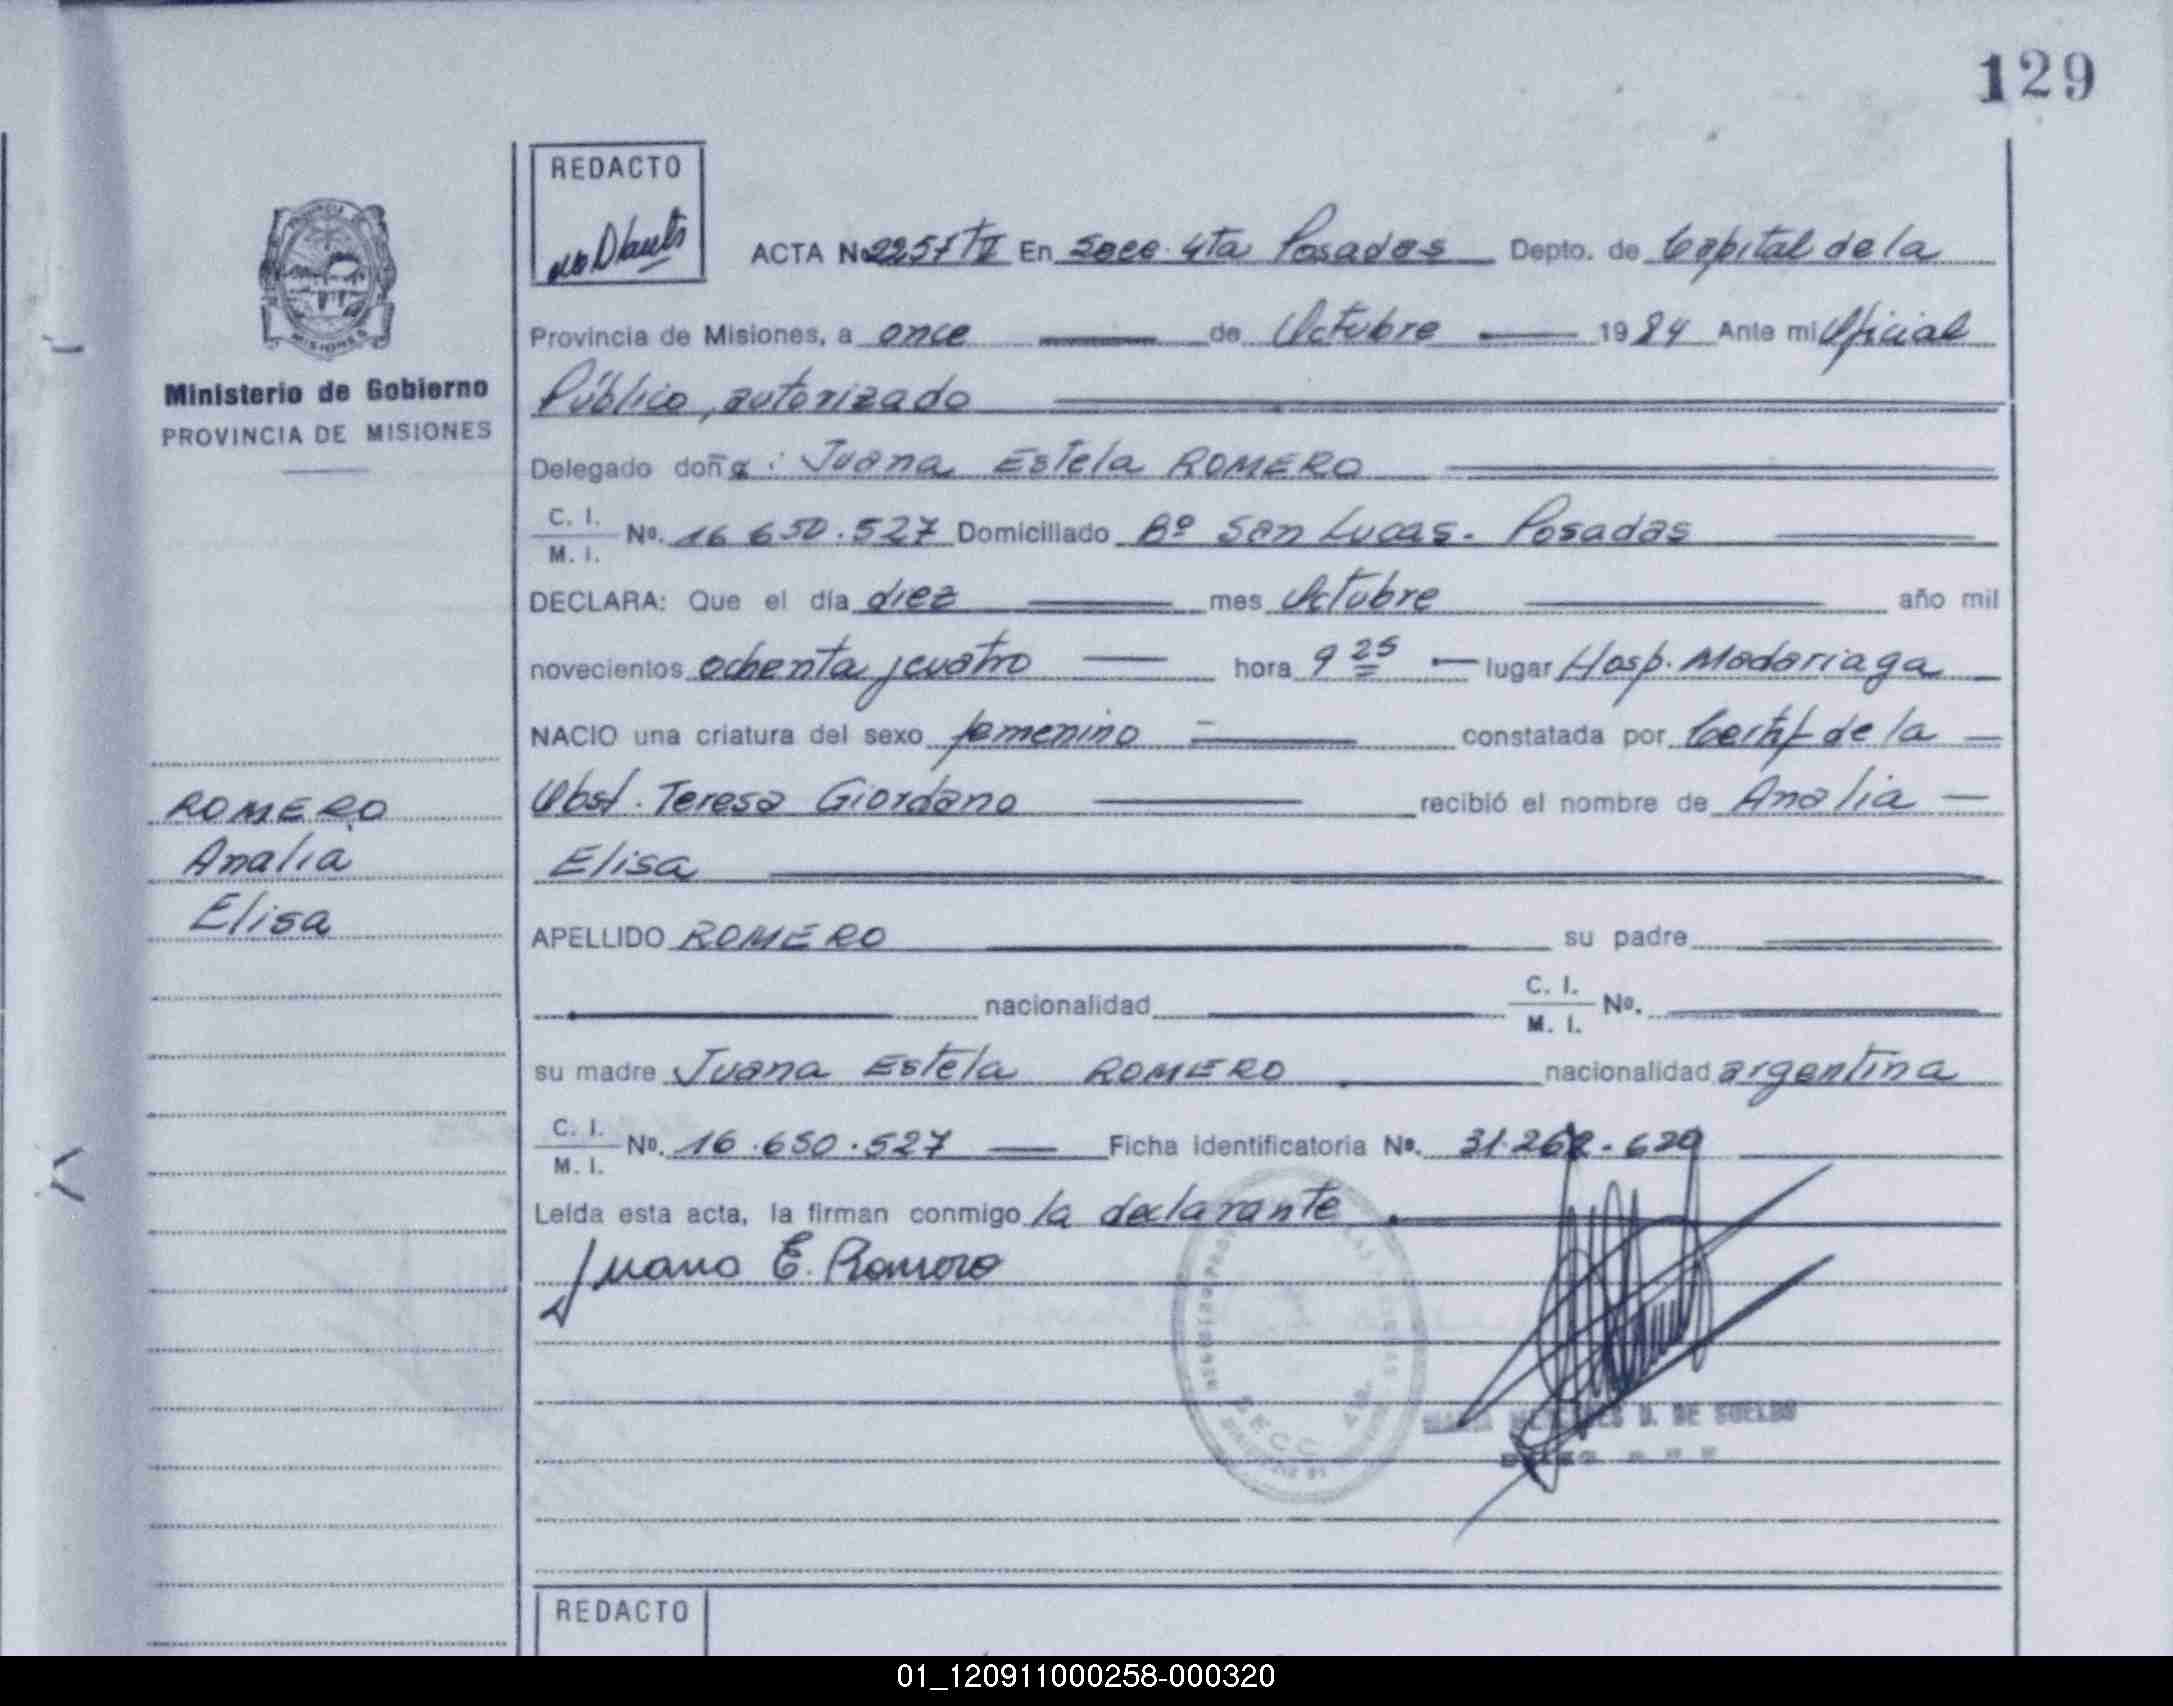 129
REDACTO
ACTA No 2257 TII En Secc. 4ta Posadas Depto. de Capital de la
Provincia de Misiones, a once de Octubre 1984 Ante mi Oficial
Ministerio de Gobierno
PROVINCIA DE MISIONES
Público, autorizado
Delegado doña: Juana Estela ROMERO
C. I.
M. I. No. 16 650.527 Domiciliado Bº San Lucas - Posadas
DECLARA: Que el día diez mes Octubre año mil
novecientos ochenta y cuatro hora 9 25 lugar Hosp. Madariaga
NACIO una criatura del sexo femenino constatada por Certif de la
Obst. Teresa Giordano recibió el nombre de Analia
Elisa
ROMERO
Analia
Elisa
APELLIDO ROMERO su padre
nacionalidad C. I.
M. I. No.
su madre Juana Estela ROMERO nacionalidad argentina
C. I.
M. I. No. 16.650.527 Ficha identificatoria No. 31.262.620
Leída esta acta, la firman conmigo la declarante
Juana E. Romero
SECC. 4a.
D. DE SUELDO
REDACTO
01_120911000258-000320